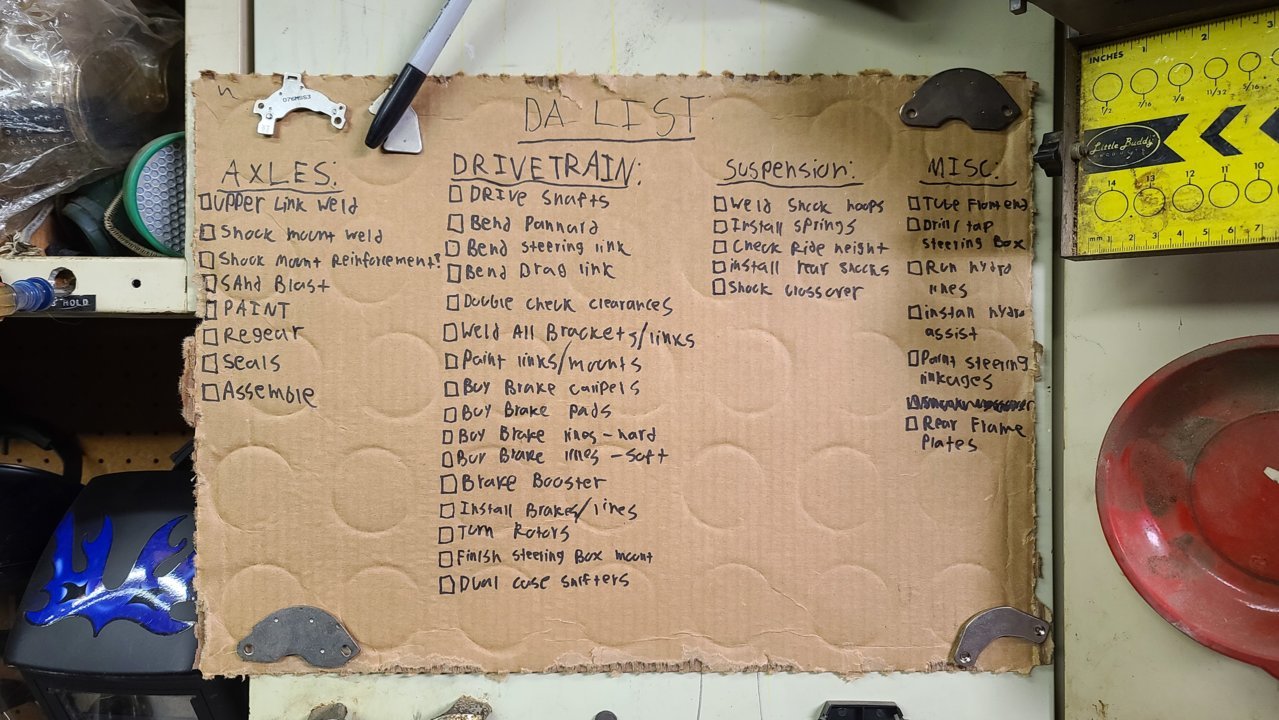 DA LIST
AXLES:
UPPER Link Weld
Shock mount weld
Shock Mount Reinforcement?
SAnd Blast
PAINT
Regear
Seals
Assemble
DRIVETRAIN:
DRIVE Shafts
Bend Panhard
Bend steering link
Bend Drag link
Double check clearances
Weld All Brackets/links
Paint links/mounts
Buy Brake calipels
Buy Brake Pads
Buy Brake lines-hard
Buy Brake lines-soft
Brake Booster
Install Brakes/lines
Turn Rotors
Finish steering Box mount
Dual case shifters
Suspension:
Weld Shock hoops
Install springs
Check Ride height
install rear shocks
Shock Crossover
MISC:
Tube Front end
Drill/tap
steering Box
Run hydro
lines
install hydro
assist
Paint steering
linkages
Rear Frame
Plates
INCHES
1 2 3
1/2 7/16 3/8 11/32 5/16
Little Buddy
14 13 12 11 10
mm 1 2 3 4 5
HOLD